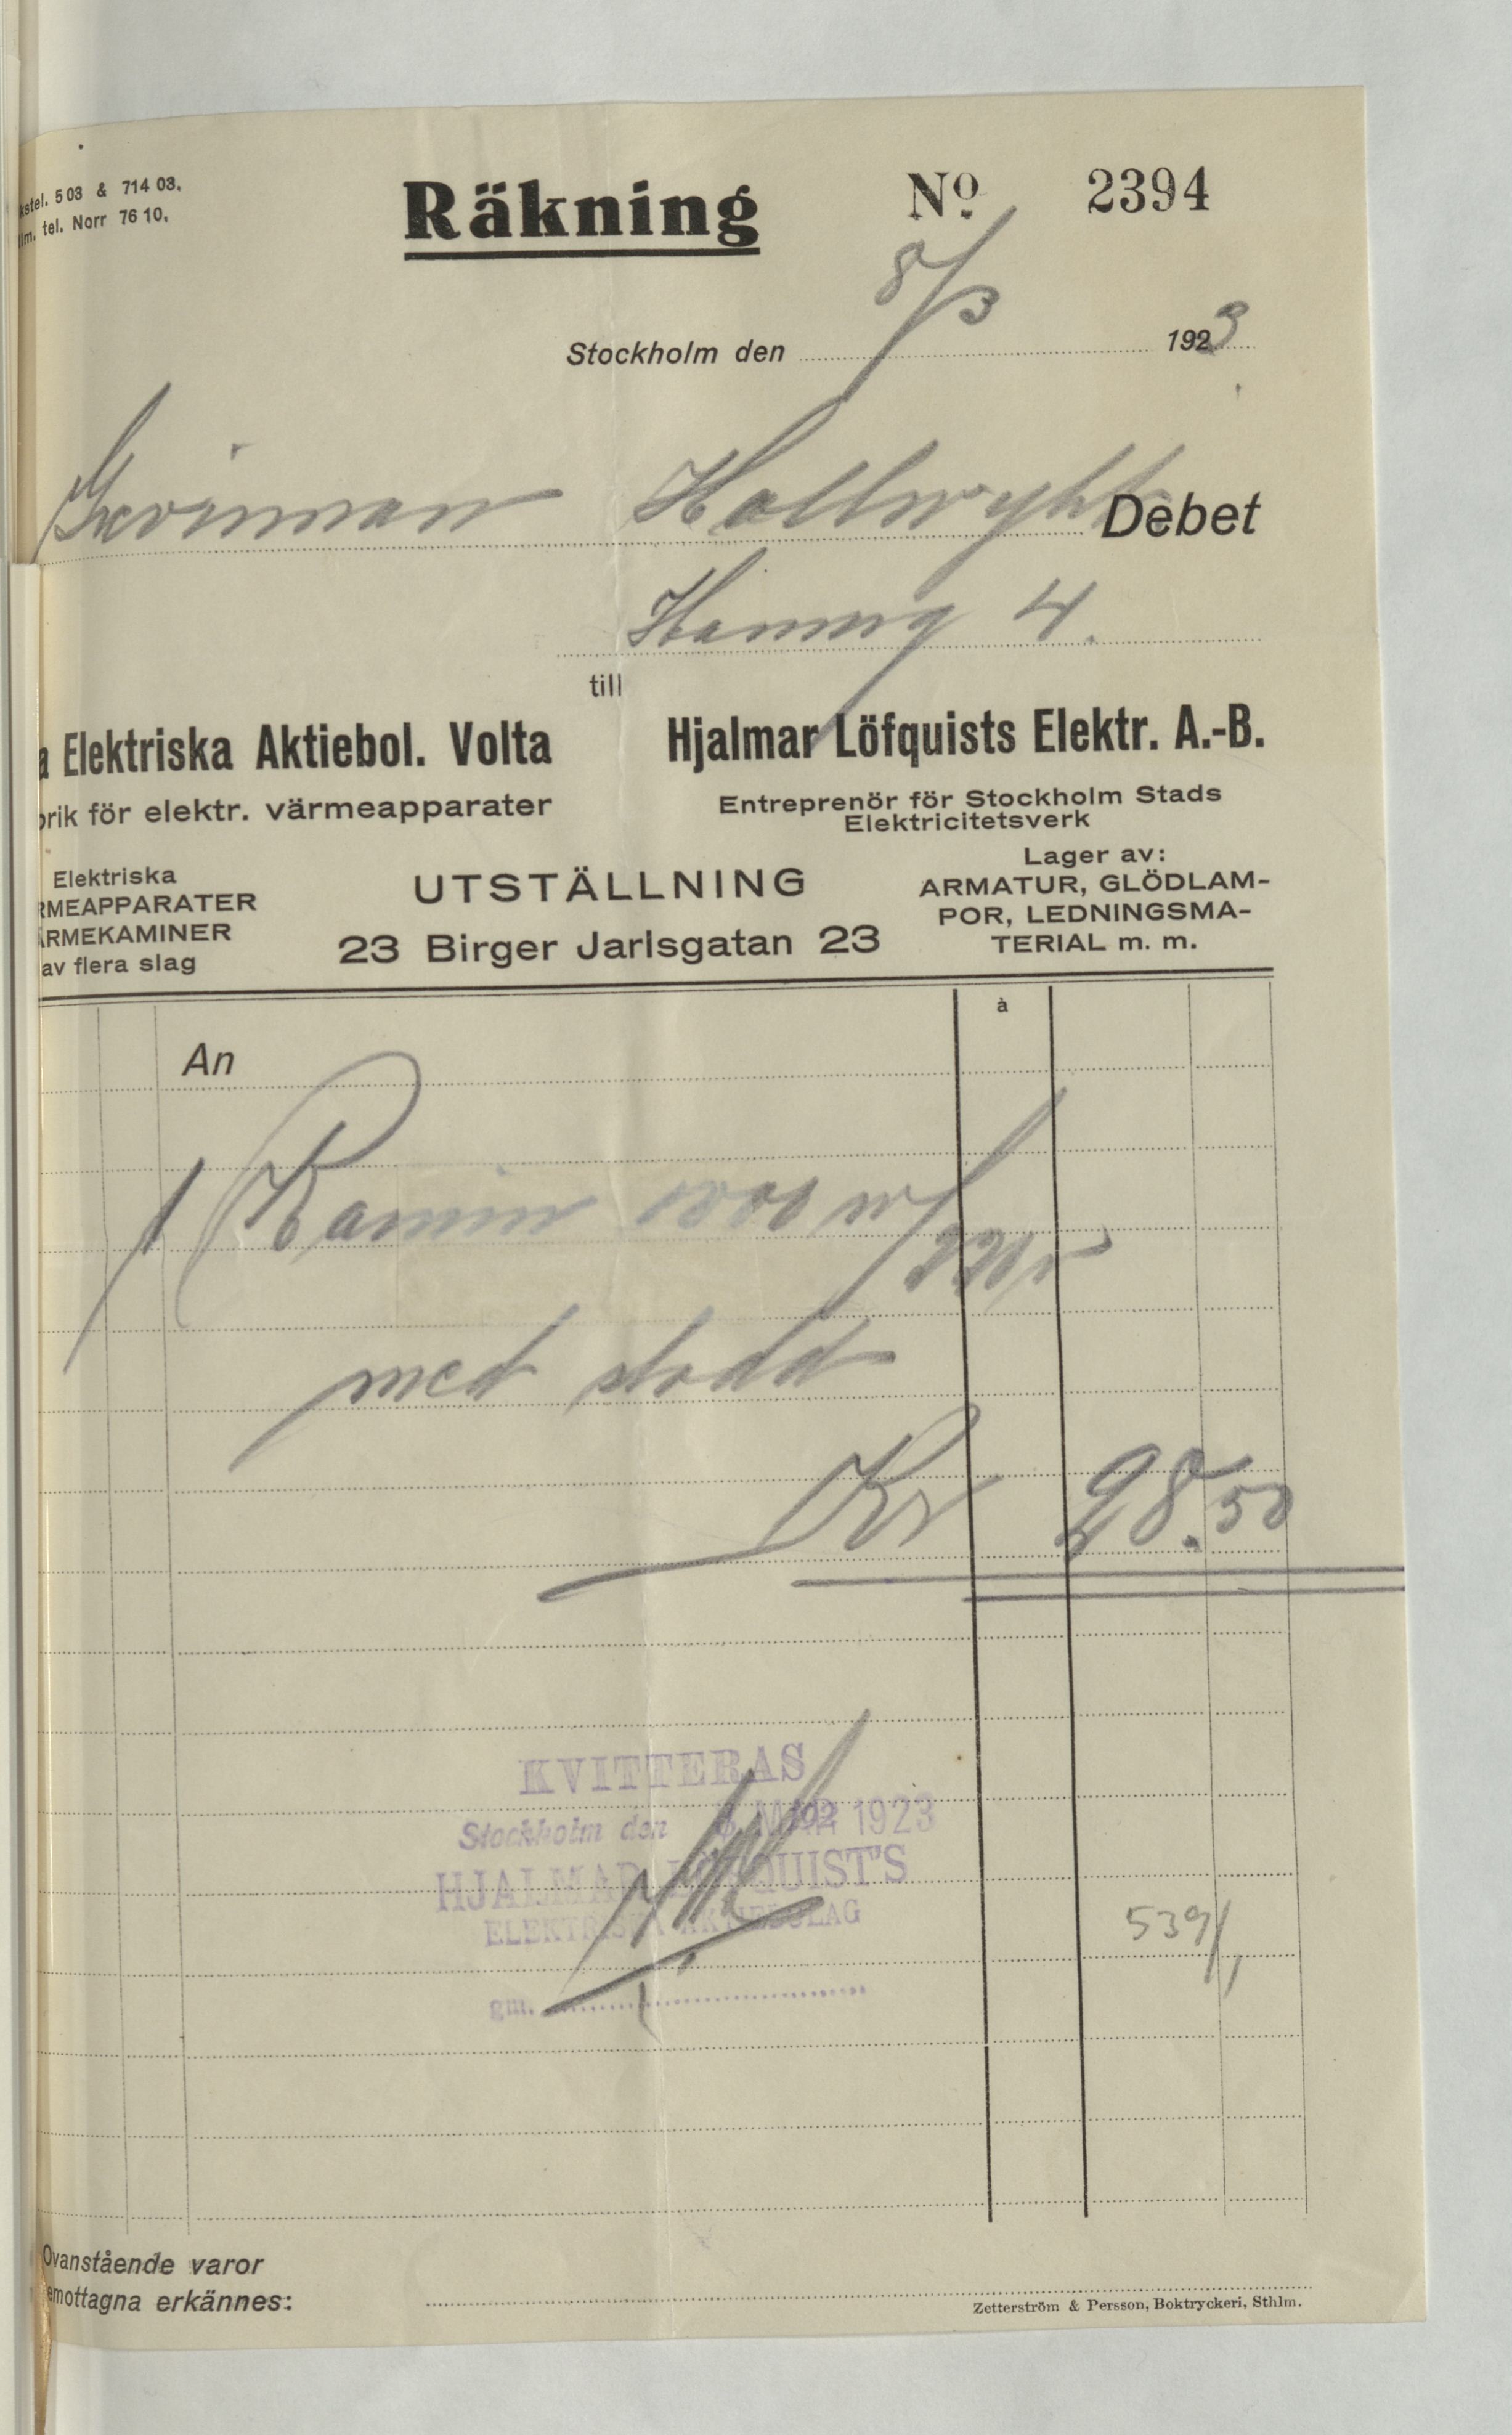 kstel. 503 & 714 03.
lm. tel. Norr 76 10.
Räkning
No. 2394
8/3
Stockholm den 1923
Grevinnan Hallwyhl Debet
Hamng 4.
till
a Elektriska Aktiebol. Volta
brik för elektr. värmeapparater
Hjalmar Löfquists Elektr. A.-B.
Entreprenör för Stockholm Stads
Elektricitetsverk
Elektriska
RMEAPPARATER
ÄRMEKAMINER
av flera slag
UTSTÄLLNING
23 Birger Jarlsgatan 23
Lager av:
ARMATUR, GLÖDLAM-
POR, LEDNINGSMA-
TERIAL m. m.
à
An
1 Kamin 1000 w/
med sladd
Kr 28.50
KVITTERAS
Stockholm den MAR 1923
HJALMAR LÖFQUIST'S
ELEKTRISKA AKTIEBOLAG
gm.
539/,
Ovanstående varor
emottagna erkännes:
Zetterström & Persson, Boktryckeri, Sthlm.